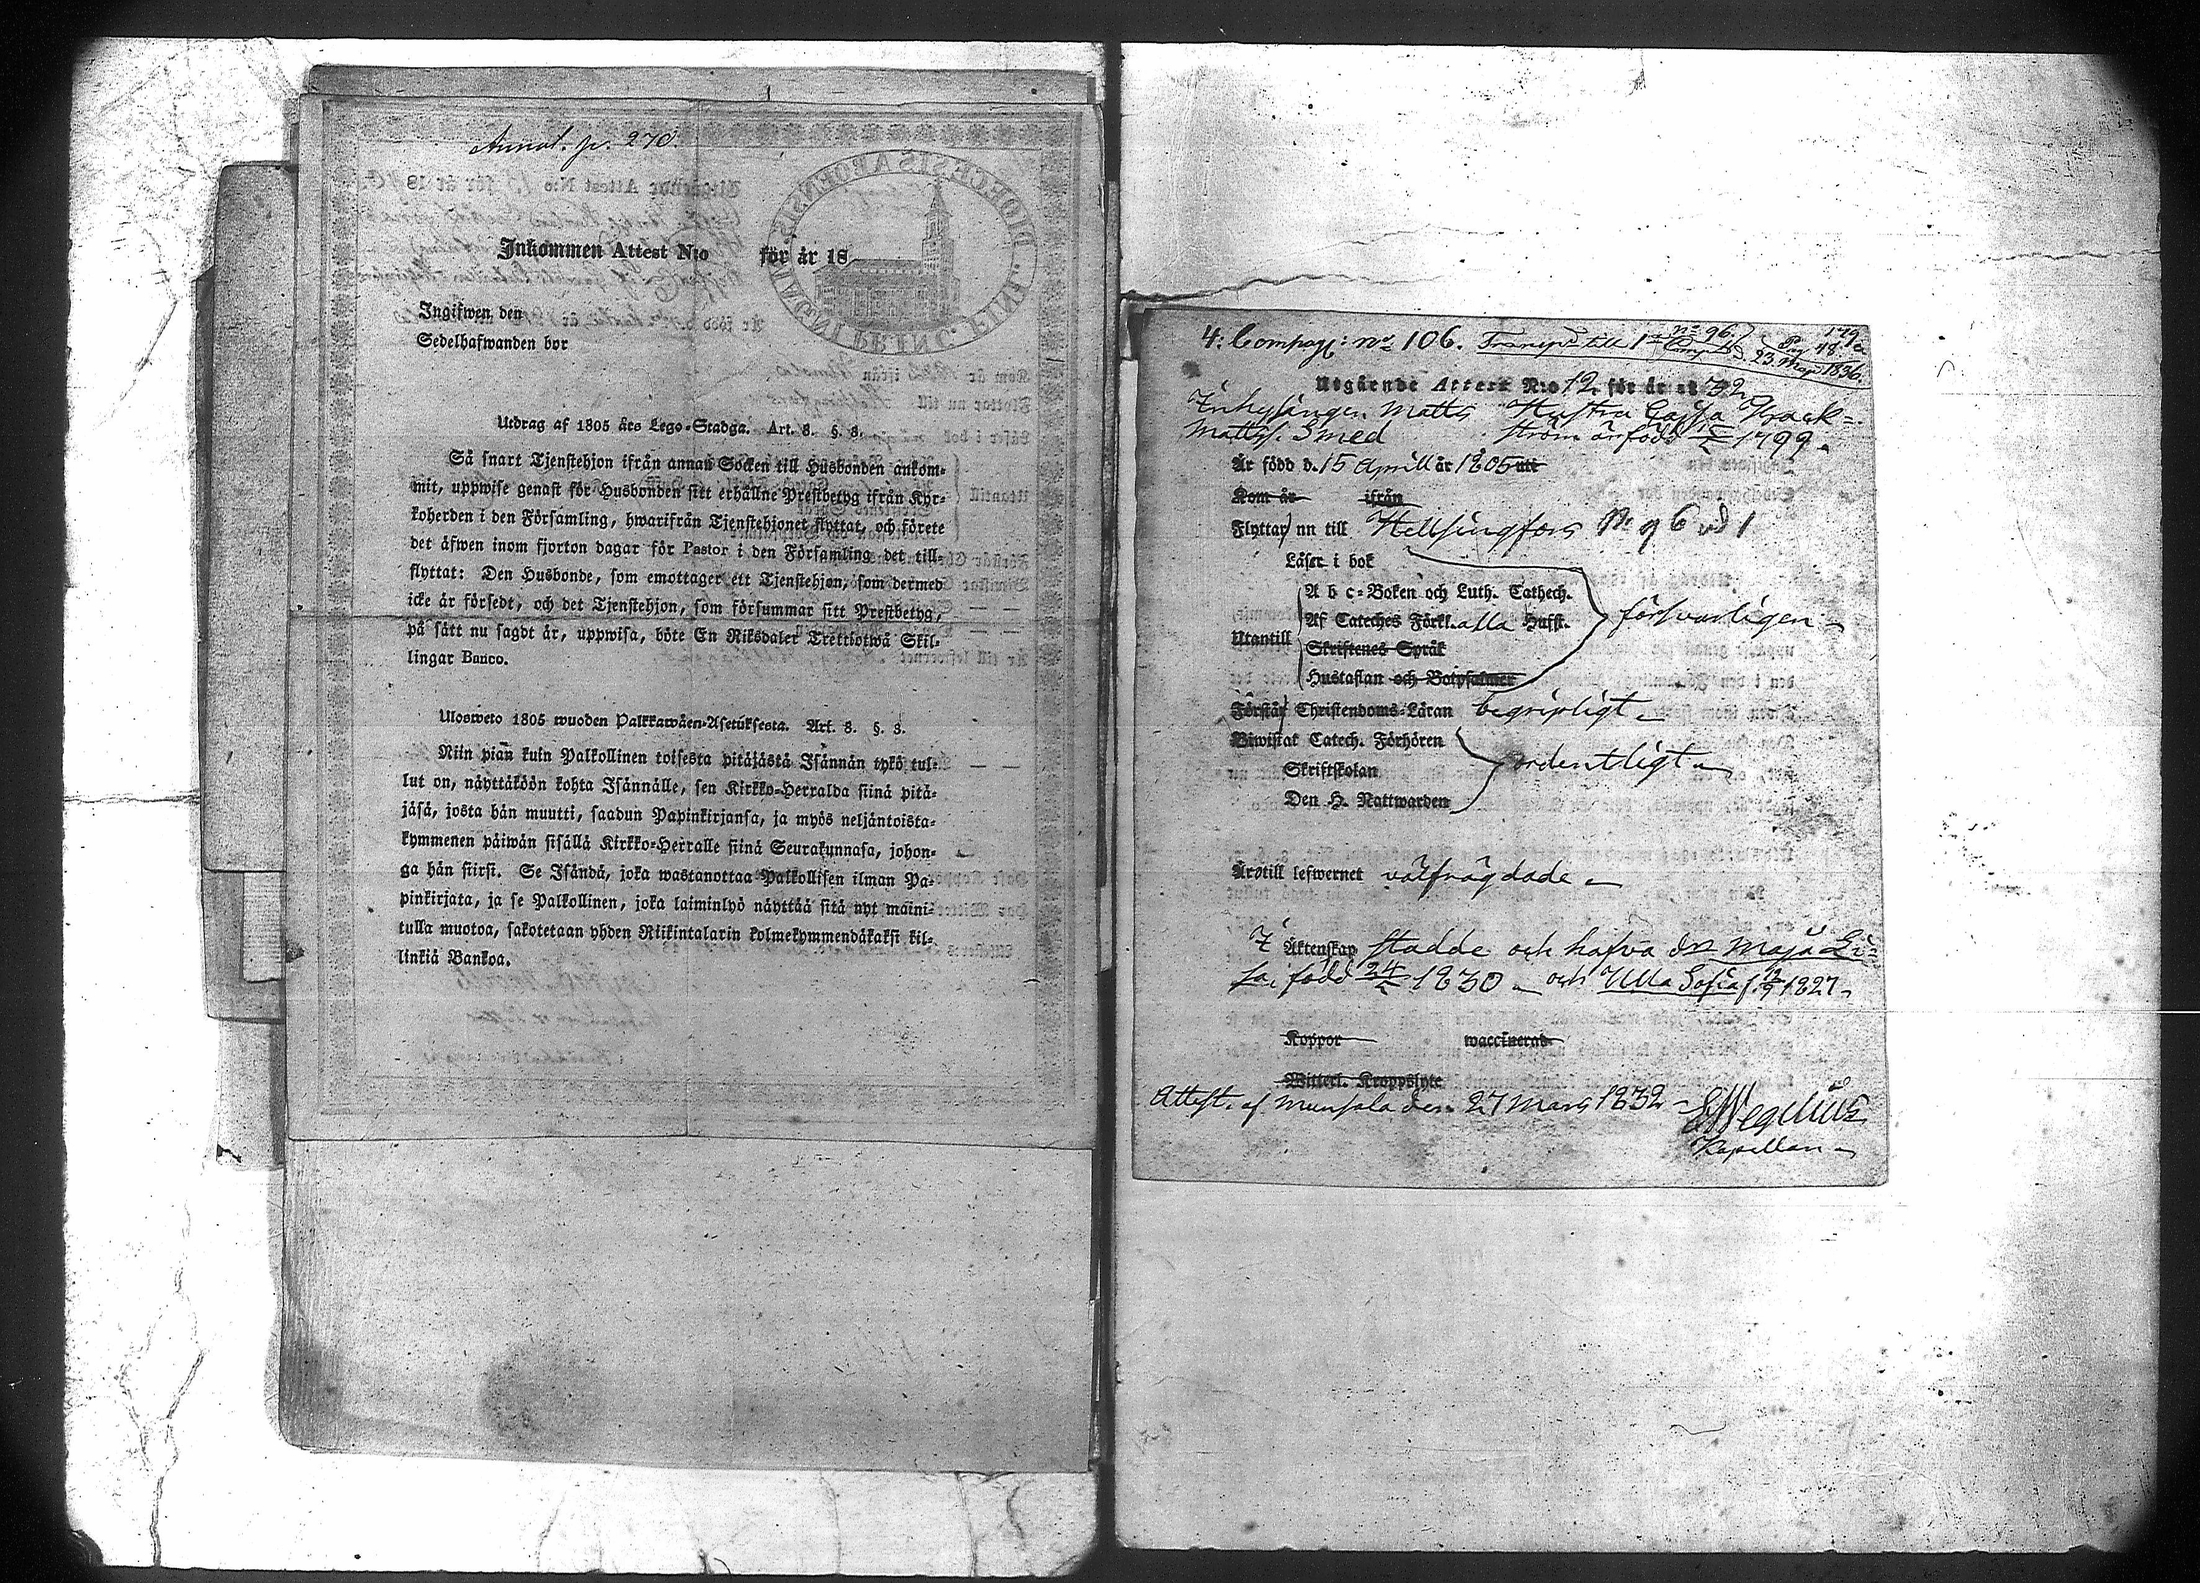 Annot. p. 270.
Inkommen Attest N:o för år 18
Ingifwen den
Sedelhafwanden bor
Utdrag af 1805 års Lego-Stadga. Art. 8. §. 8.
Så snart Tjenstehjon ifrån annan Socken till Husbonden ankom-
mit, uppwise genast för Husbonden sitt erhållne Prestbetyg ifrån Kyr-
koherden i den Församling, hwarifrån Tjenstehjonet flyttat, och förete
det äfwen inom fjorton dagar för Pastor i den Församling det till-
flyttat: Den Husbonde, som emottager ett Tjenstehjon, som dermed
icke är försedt, och det Tjenstehjon, som försummar sitt Prestbetyg,
på sätt nu sagdt är, uppwisa, böte En Riksdaler Trettiotwå Skil-
lingar Banco.
Ulosweto 1805 wuoden Palkkawäen-Asetuksesta. Art. 8. §. 8.
Niin pian kuin Palkollinen toisesta pitäjästä Isännän tykö tul-
lut on, näyttäköön kohta Isännälle, sen Kirkko-Herralda siinä pitä-
jäsä, josta hän muutti, saadun Papinkirjansa, ja myös neljäntoista-
kymmenen päiwän sisällä Kirkko-Herralle siinä Seurakunnasa, johon-
ga hän siirsi. Se Isändä, joka wastanottaa Palkollisen ilman Pa-
pinkirjata, ja se Palkollinen, joka laiminlyö näyttää sitä nyt maini-
tulla muotoa, sakotetaan yhden Riikintalarin kolmekymmendäkaksi kil-
linkiä Bankoa.
4: Compag: no 106. Transp till 1 no 96. 23 Maj 1836.
Utgående Attest N:o 12 för år 1832
Inhysingen Matts Hustru Cajsa Back-
Mattss. Smed ström är född 15/ 1799.
Är född d. 15 April år 1805 uti
Kom år ifrån
Flytta nu till Hellsingfors N. 96 vid 1
Läser i bok
A b c-Boken och Luth. Cathech.
Utantill Af Cateches Förkl. alla Hufst. försvarligen
Skriftenes Språk
Hustaflan och Botpsalmer
Förstår Christendoms-Läran begripligt
Biwistat Catech. Förhören
Skriftskolan ordentligt
Den H. Nattwarden
Äro till lefwernet välfrägdade
I Äktenskap stadde och hafva dr Maja Li-
sa, född 24/ 1830 och Ulla Sofia f. 12/9 1827
Koppor waccinerad
Witterl. Kroppslyte
Attest. af Munsala den 27 Mars 1832
Wegelius
Kapellan